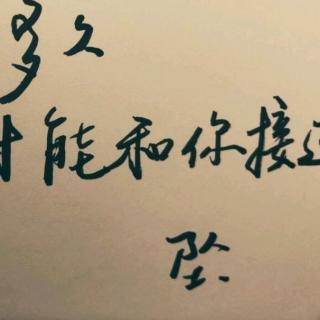 多久
能和你接
坠